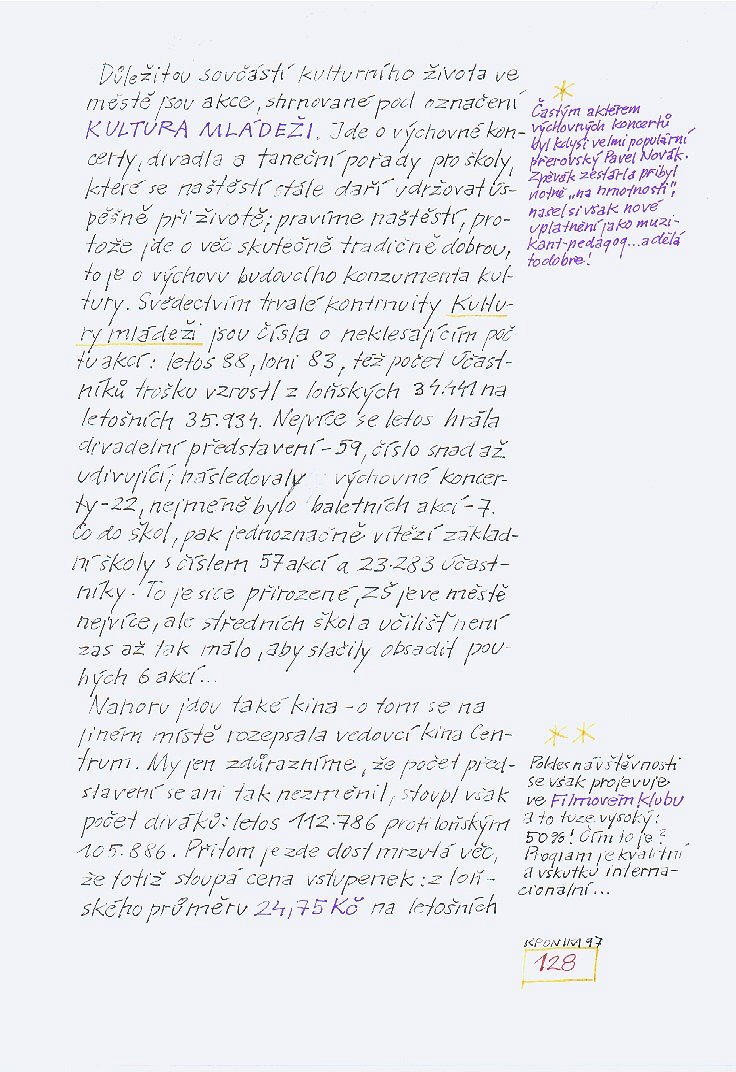 Důležitou součástí kulturního života ve
městě jsou akce, shrnované pod označení
KULTURA MLÁDEŽI. Jde o výchovné kon-
certy, divadla a taneční pořady pro školy,
které se naštěstí stále daří udržovat ús-
pěšně při životě; pravíme naštěstí, pro-
tože jde o věc skutečně tradičně dobrou,
to je o výchovu budoucího konzumenta kul-
tury. Svědectvím trvalé kontinuity Kultu-
ry mládeži jsou čísla o neklesajícím poč
tu akcí: letos 88, loni 83, též počet účast-
níků trošku vzrostl z loňských 34.441 na
letošních 35.934. Nejvíce se letos hrála
divadelní představení - 59, číslo snad až
udivující; následovaly výchovné koncer-
ty - 22, nejméně bylo baletních akcí - 7.
Co do škol, pak jednoznačně vítězí základ-
ní školy s číslem 57 akcí a 23.283 účast-
níky. To je sice přirozené, ZŠ je ve městě
nejvíce, ale středních škol a učilišť není
zas až tak málo, aby stačily obsadit pou-
hých 6 akcí...
Nahoru jdou také kina - o tom se na
jiném místě rozepsala vedoucí kina Cen-
trum. My jen zdůrazníme, že počet před-
stavení se ani tak nezměnil, stoupl však
počet diváků: letos 112.786 proti loňským
105.886. Přitom je zde dost mrzutá věc,
že totiž stoupá cena vstupenek: z loň-
ského průměru 24,75 Kč na letošních
*
Častým aktérem
výchovných koncertů
byl kdysi velmi populární
přerovský Pavel Novák.
Zpěvák zestárl a přibyl
notně „na hmotnosti",
našel si však nové
uplatnění jako muzi-
kant-pedagog... a dělá
to dobře!
* *
Pokles návštěvnosti
se však projevuje
ve Filmovém klubu
a to tuze vysoký:
50%! Čím to je?
Program je kvalitní
a vskutku interna-
cionální...
KRONIKA 97
128